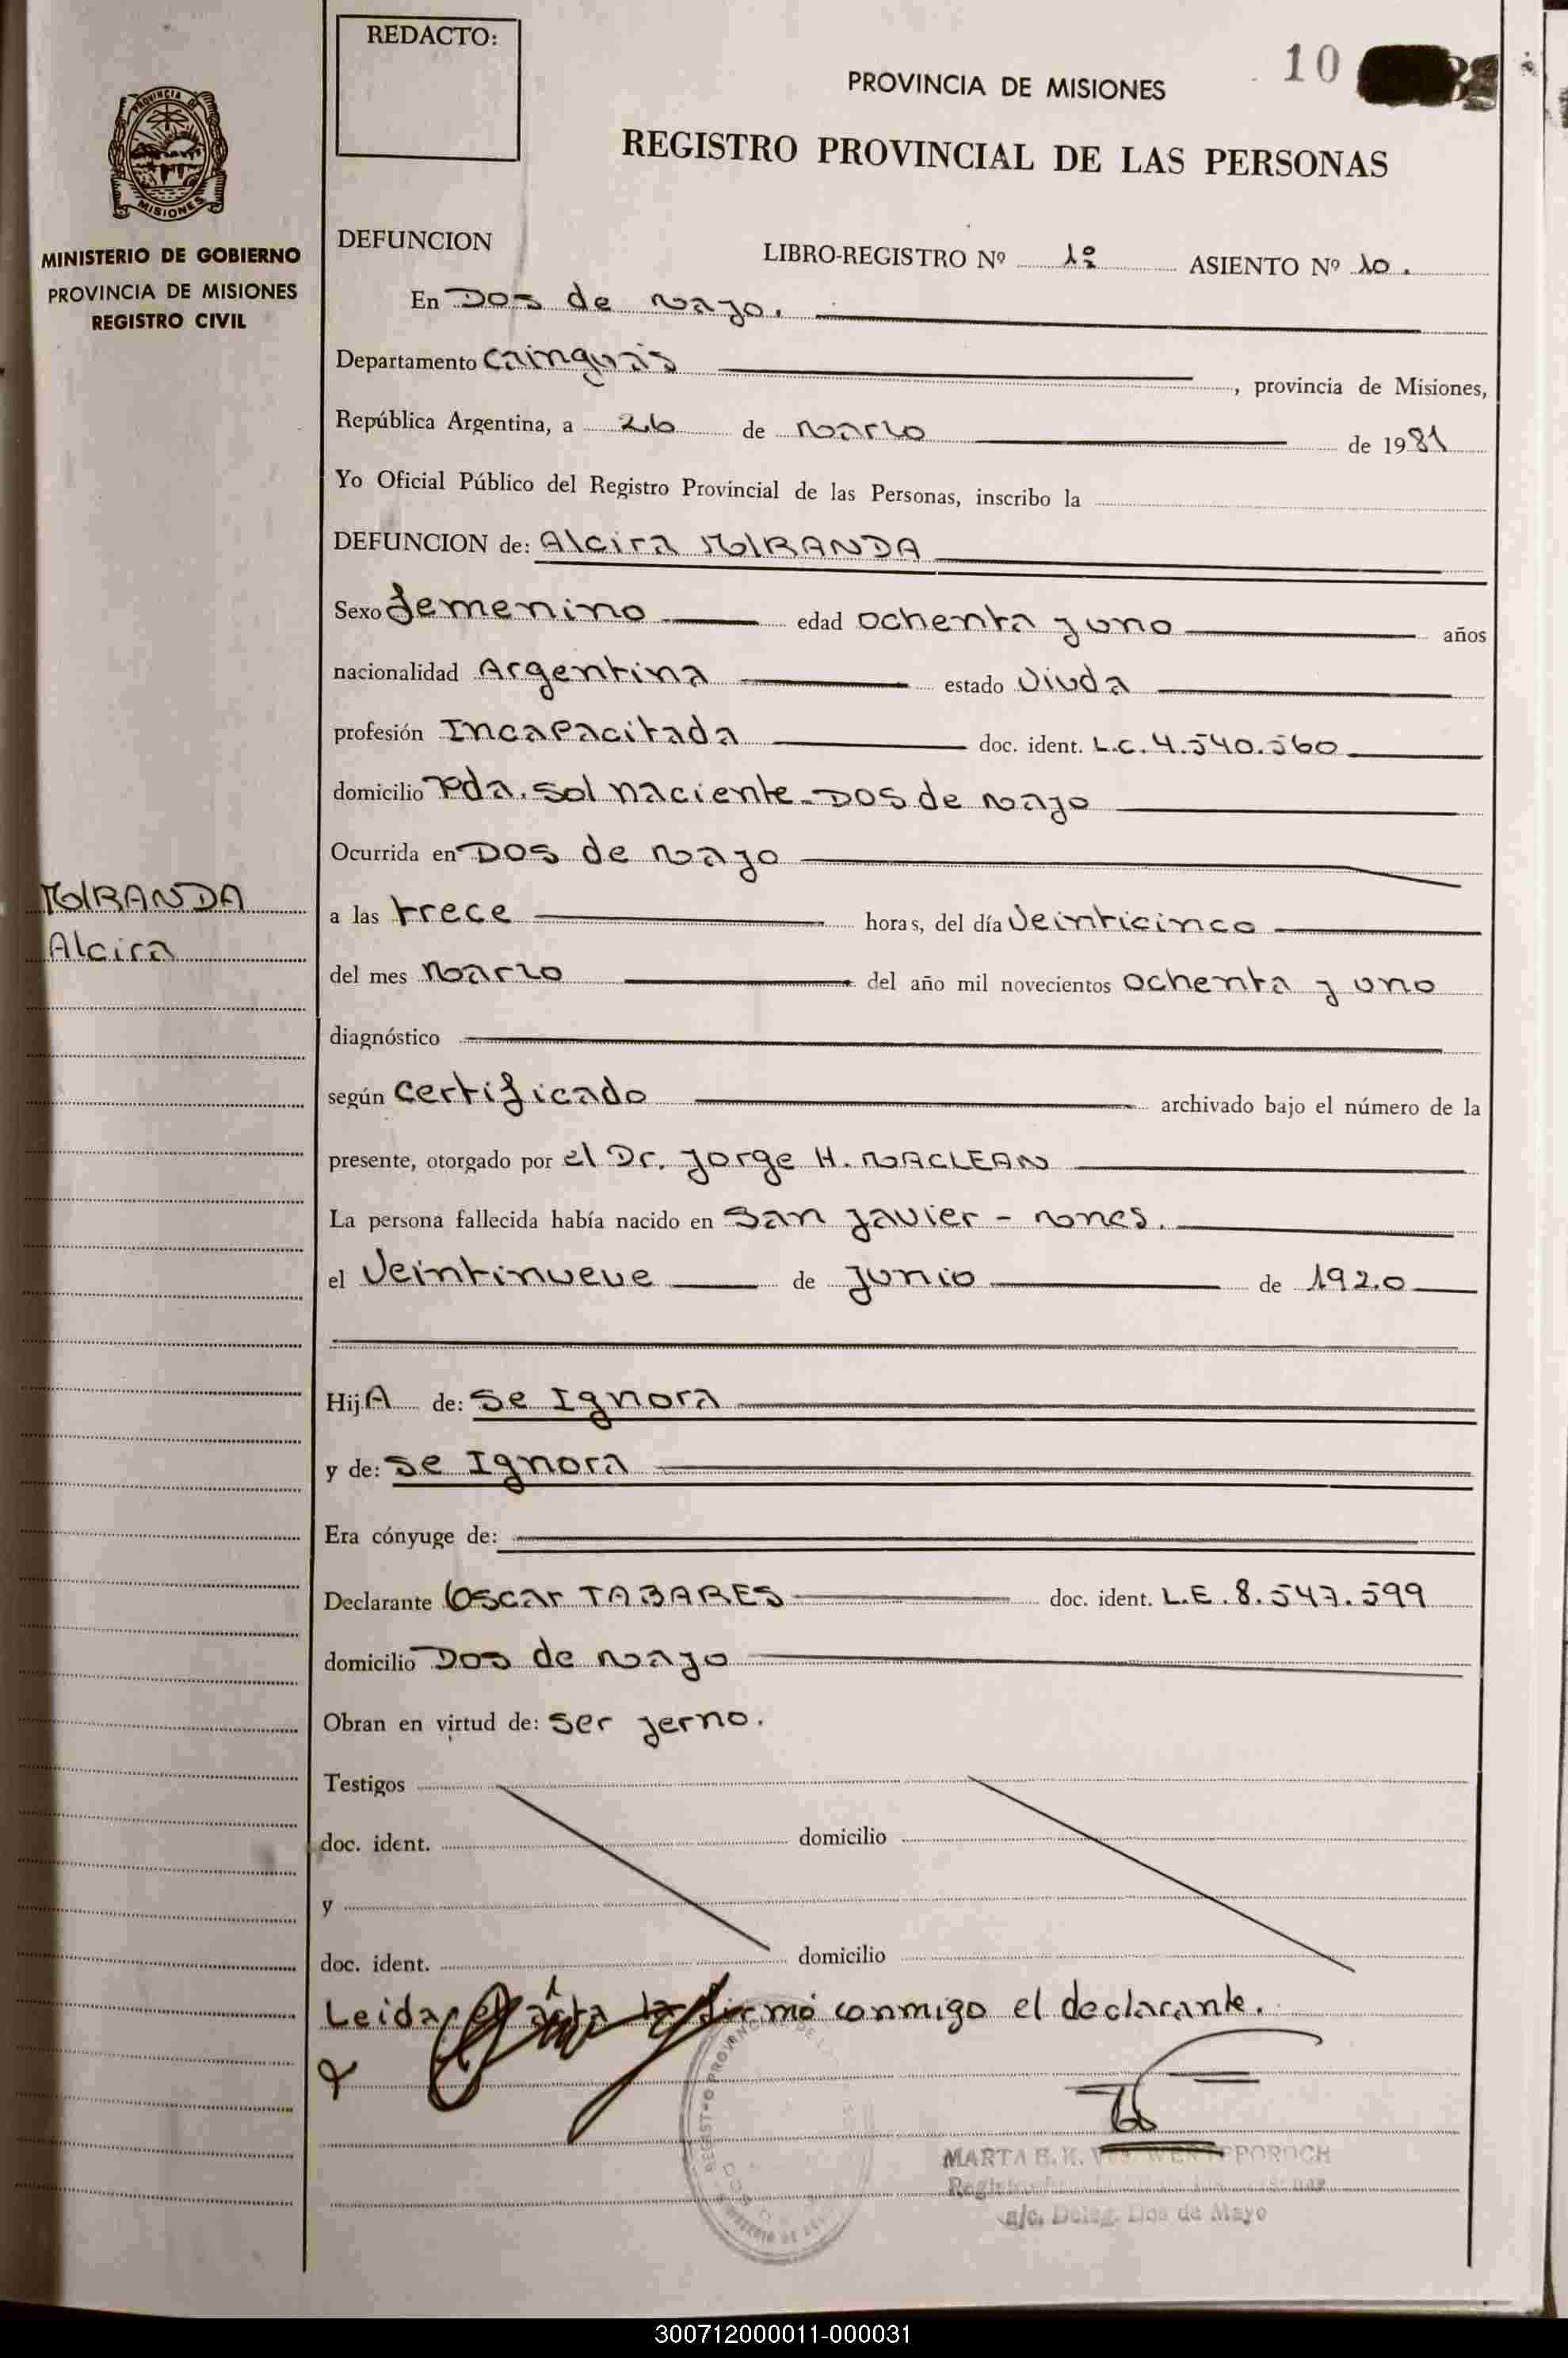 REDACTO:
10
PROVINCIA DE MISIONES
REGISTRO PROVINCIAL DE LAS PERSONAS
PROVINCIA DE
MISIONES
MINISTERIO DE GOBIERNO
PROVINCIA DE MISIONES
REGISTRO CIVIL
DEFUNCION
LIBRO-REGISTRO Nº 1º ASIENTO Nº 10.
En Dos de Mayo.
Departamento Cainguás, provincia de Misiones,
República Argentina, a 26 de Marzo de 1981
Yo Oficial Público del Registro Provincial de las Personas, inscribo la
DEFUNCION de: Alcira MIRANDA
Sexo femenino edad ochenta y uno años
nacionalidad Argentina estado Viuda
profesión Incapacitada doc. ident. L.C. 4.540.560
domicilio Pda. Sol naciente - Dos de Mayo
Ocurrida en Dos de Mayo
MIRANDA
Alcira
a las trece horas, del día Veinticinco
del mes Marzo del año mil novecientos ochenta y uno
diagnóstico
según certificado archivado bajo el número de la
presente, otorgado por el Dr. Jorge H. MACLEAN
La persona fallecida había nacido en San Javier - Mnes.
el Veintinueve de Junio de 1920
HijA de: Se Ignora
y de: Se Ignora
Era cónyuge de:
Declarante Oscar TABARES doc. ident. L.E. 8.547.599
domicilio Dos de Mayo
Obran en virtud de: Ser yerno.
Testigos
doc. ident. domicilio
y
doc. ident. domicilio
Leida el ácta la firmó conmigo el declarante.
MARTA B. K.
a/c. Deleg. Dos de Mayo
300712000011-000031